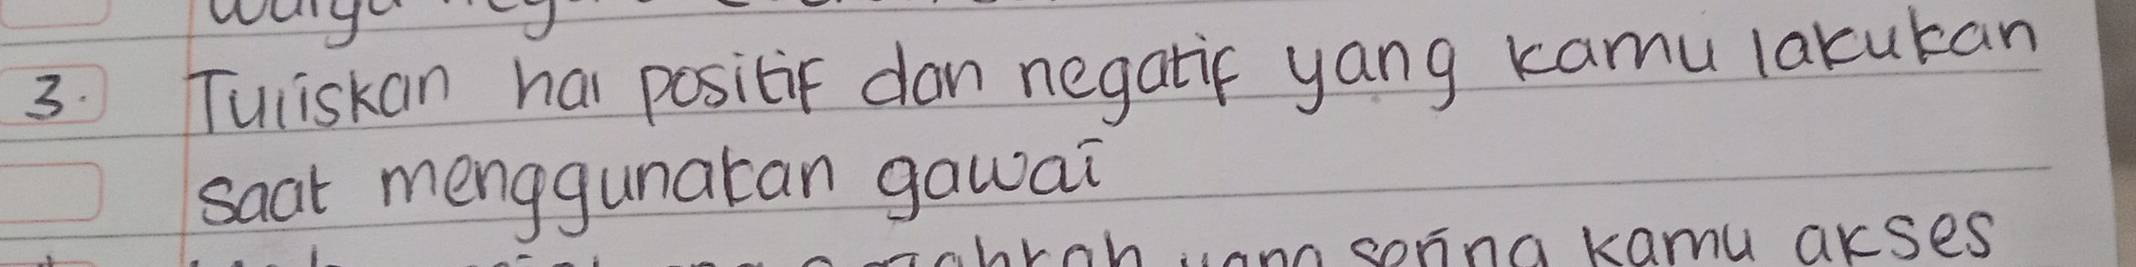 3. Tuliskan hal positif dan negatif yang kamu lakukan
saat menggunakan gawai
yang sering kamu akses